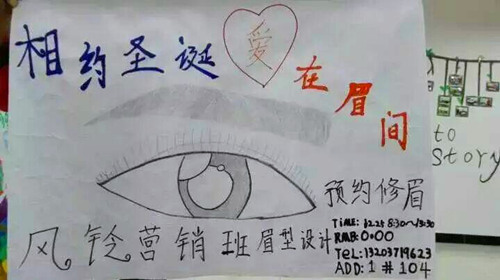 相约圣诞
爱
在眉间
预约修眉
风铃营销班眉型设计
TiME: 12.25 8:30~13:30
RMB: 0.00
TeL: 13203719623
ADD: 1#104
to
story